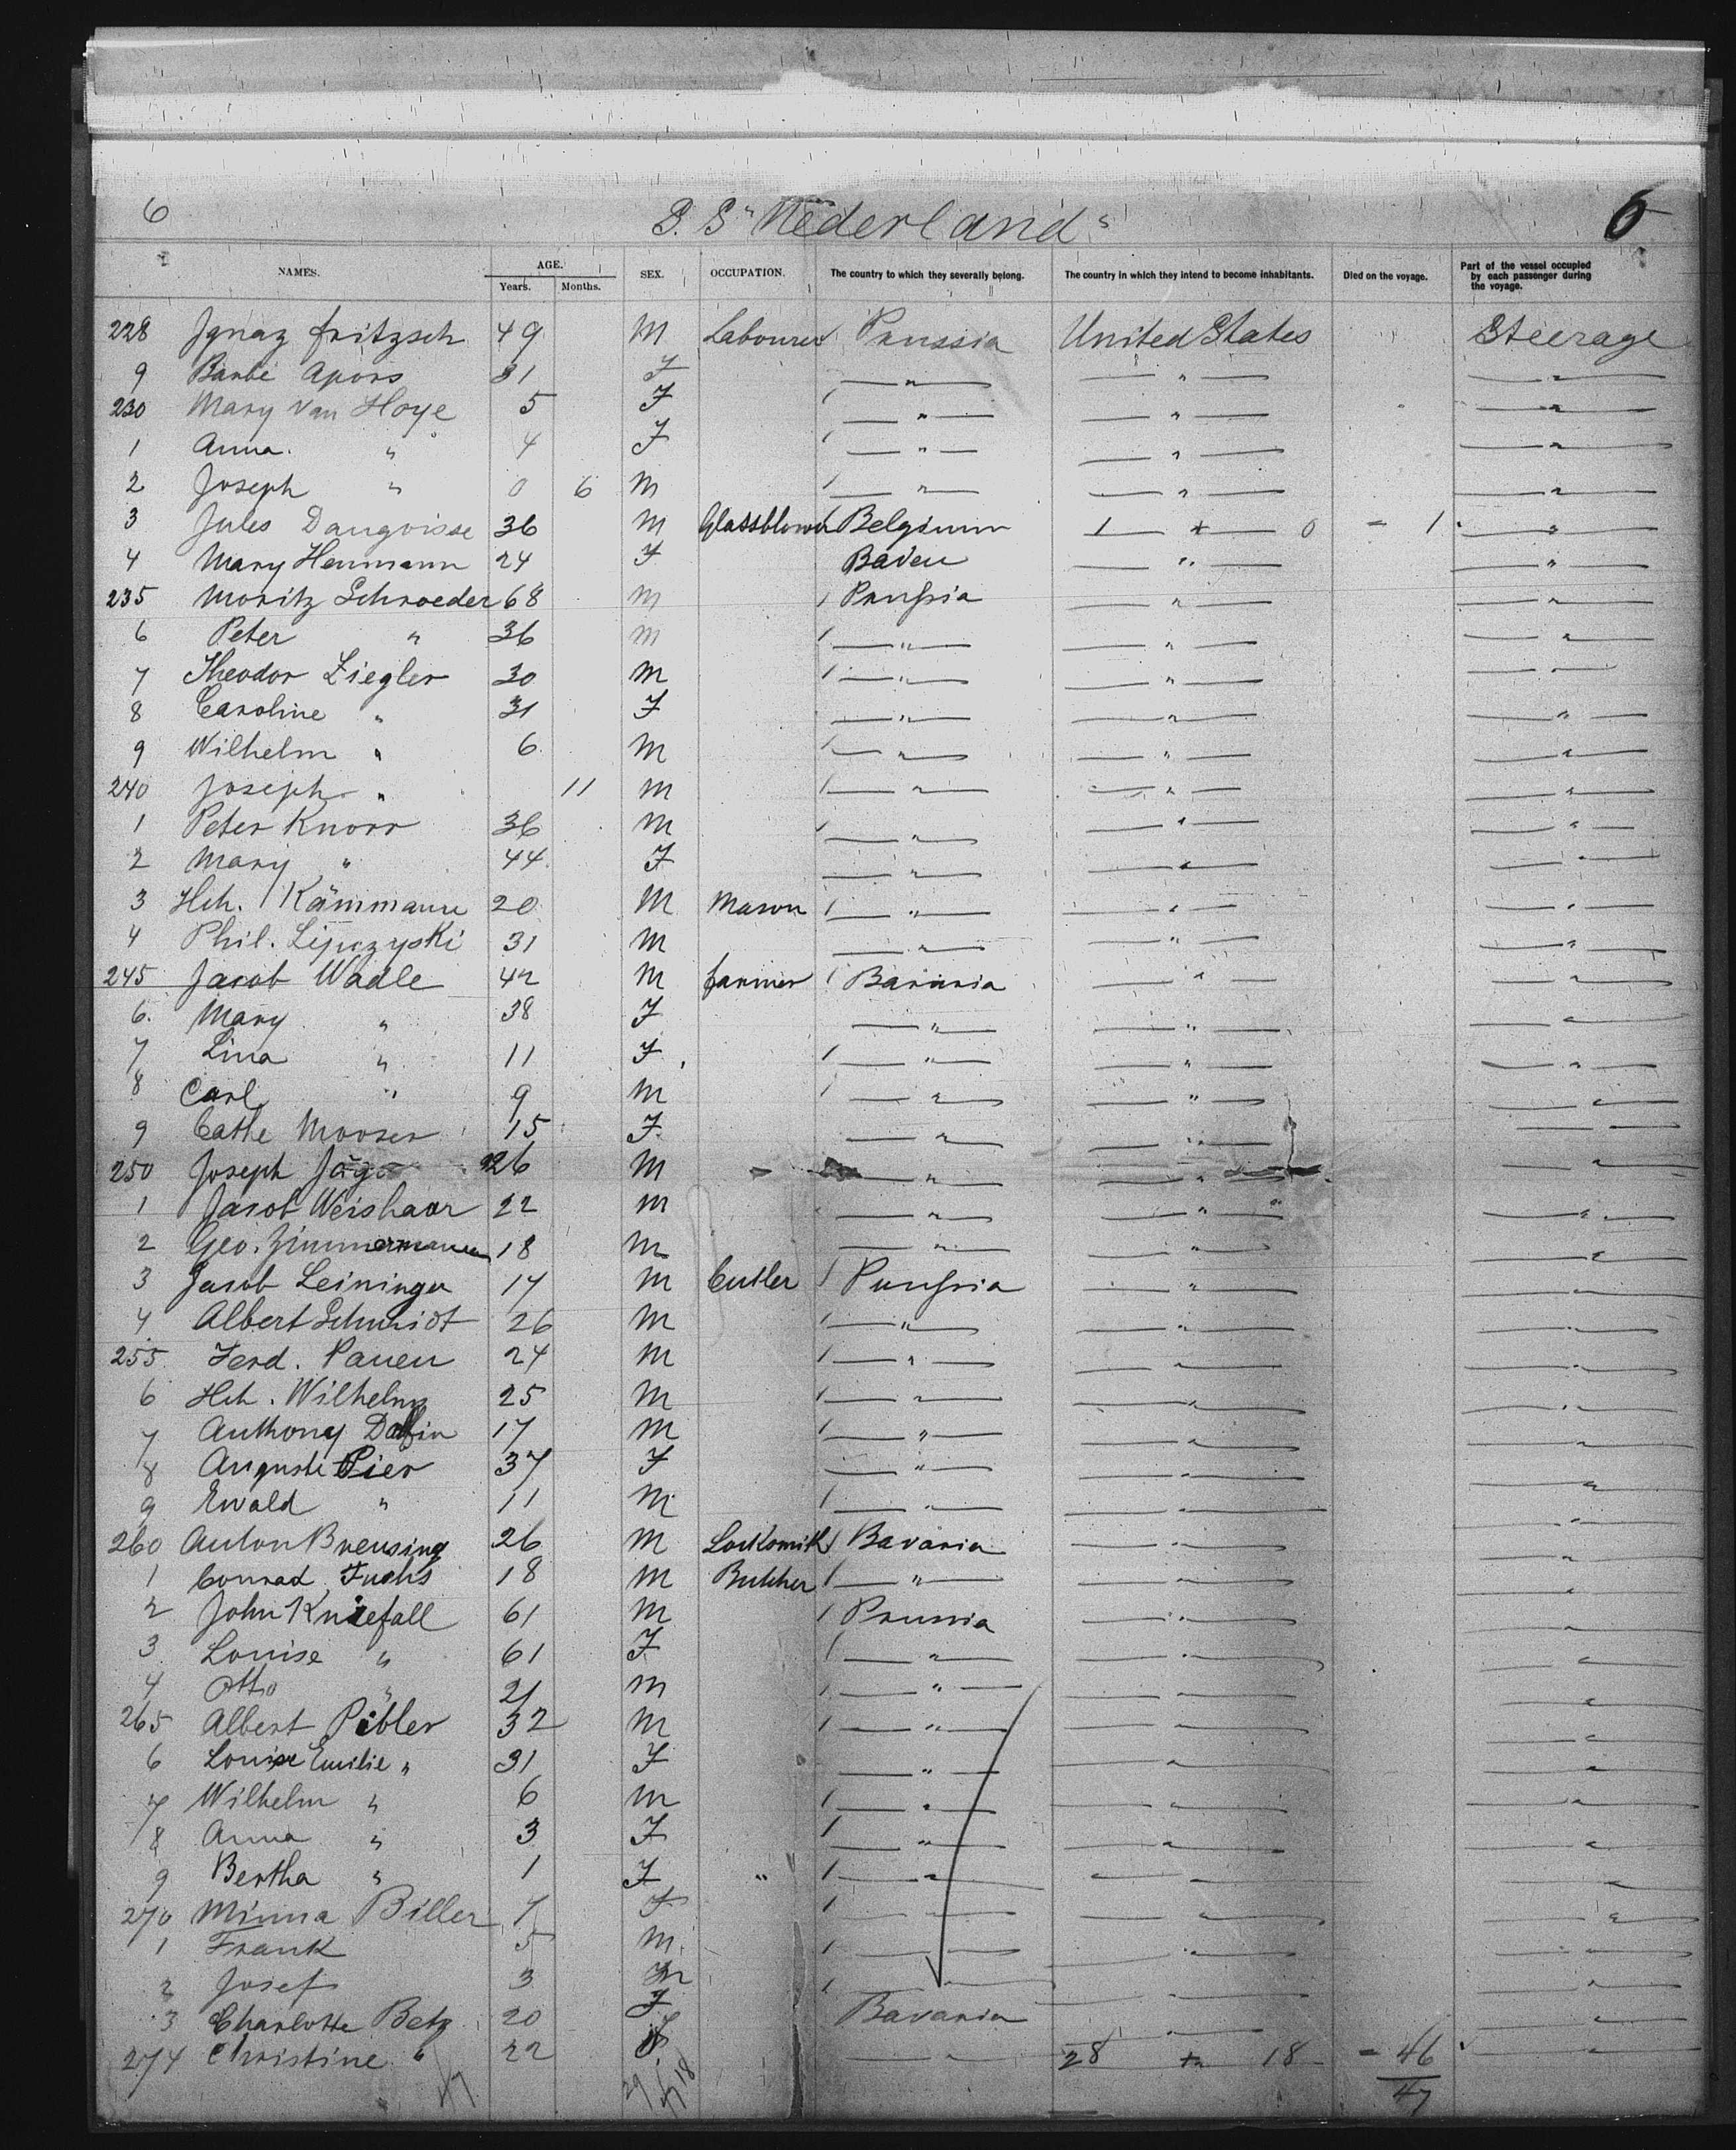 6 S. S "Nederland" 6
NAMES. AGE. Years. Months. SEX. OCCUPATION. The country to which they severally belong. The country in which they intend to become inhabitants. Died on the voyage. Part of the vessel occupied by each passenger during the voyage.
228 Ignaz fritzsch 49 M Labourer Prussia United States Steerage
9 Barbe Apors 31 F " " "
230 Mary Van Hoye 5 F " " "
1 Anna. " 4 F " " "
2 Joseph " 0 6 M " " "
3 Jules Daugvisse 36 M Glassblower Belgium 1 + 0 = 1 "
4 Mary Henmann 24 F Baden " "
235 Moritz Schroeder 68 M Prussia " "
6 Peter " 36 M " " "
7 Theodor Ziegler 30 M " " "
8 Caroline " 31 F " " "
9 Wilhelm " 6 M " " "
240 Joseph " 11 M " " "
1 Peter Knorr 36 M " " "
2 Mary " 44 F " " "
3 Hch. Kämmaure 20 M Mason " " "
4 Phil. Lipczyski 31 M " " "
245 Jacob Wadle 42 M farmer Bavaria " "
6. Mary " 38 F " " "
7 Lina " 11 F " " "
8 Carl " 9 M " " "
9 Cathe Mooser 15 F " " "
250 Joseph Jäg 26 M " " "
1 Jacob Weishaar 22 M " " "
2 Geo. Zimmermann 18 M " " "
3 Jacob Leininger 17 M Cutler Prussia " "
4 Albert Schmidt 26 M " " "
255 Ferd. Pauen 24 M " " "
6 Hch. Wilhelm 25 M " " "
7 Anthony 17 M " " "
8 Auguste Pier 37 F " " "
9 Ewald " 11 M " " "
260 Anton Breusing 26 M Locksmith Bavaria " "
1 Conrad Fuchs 18 M Butcher " " "
2 John Kniefall 61 M Prussia " "
3 Louise " 61 F " " "
4 Otto " 21 M " " "
265 Albert Pibler 32 M " " "
6 Louise Emilie " 31 F " " "
7 Wilhelm " 6 M " " "
8 Anna " 3 F " " "
9 Bertha " 1 F " " " "
270 Minna Biller 7 F " " "
1 Frank 5 M " " "
2 Josef 3 M " " "
3 Charlotte Betz 20 F Bavaria " "
274 Christine " 22 F " 28 + 18 = 46 "
47 29 18 47 47